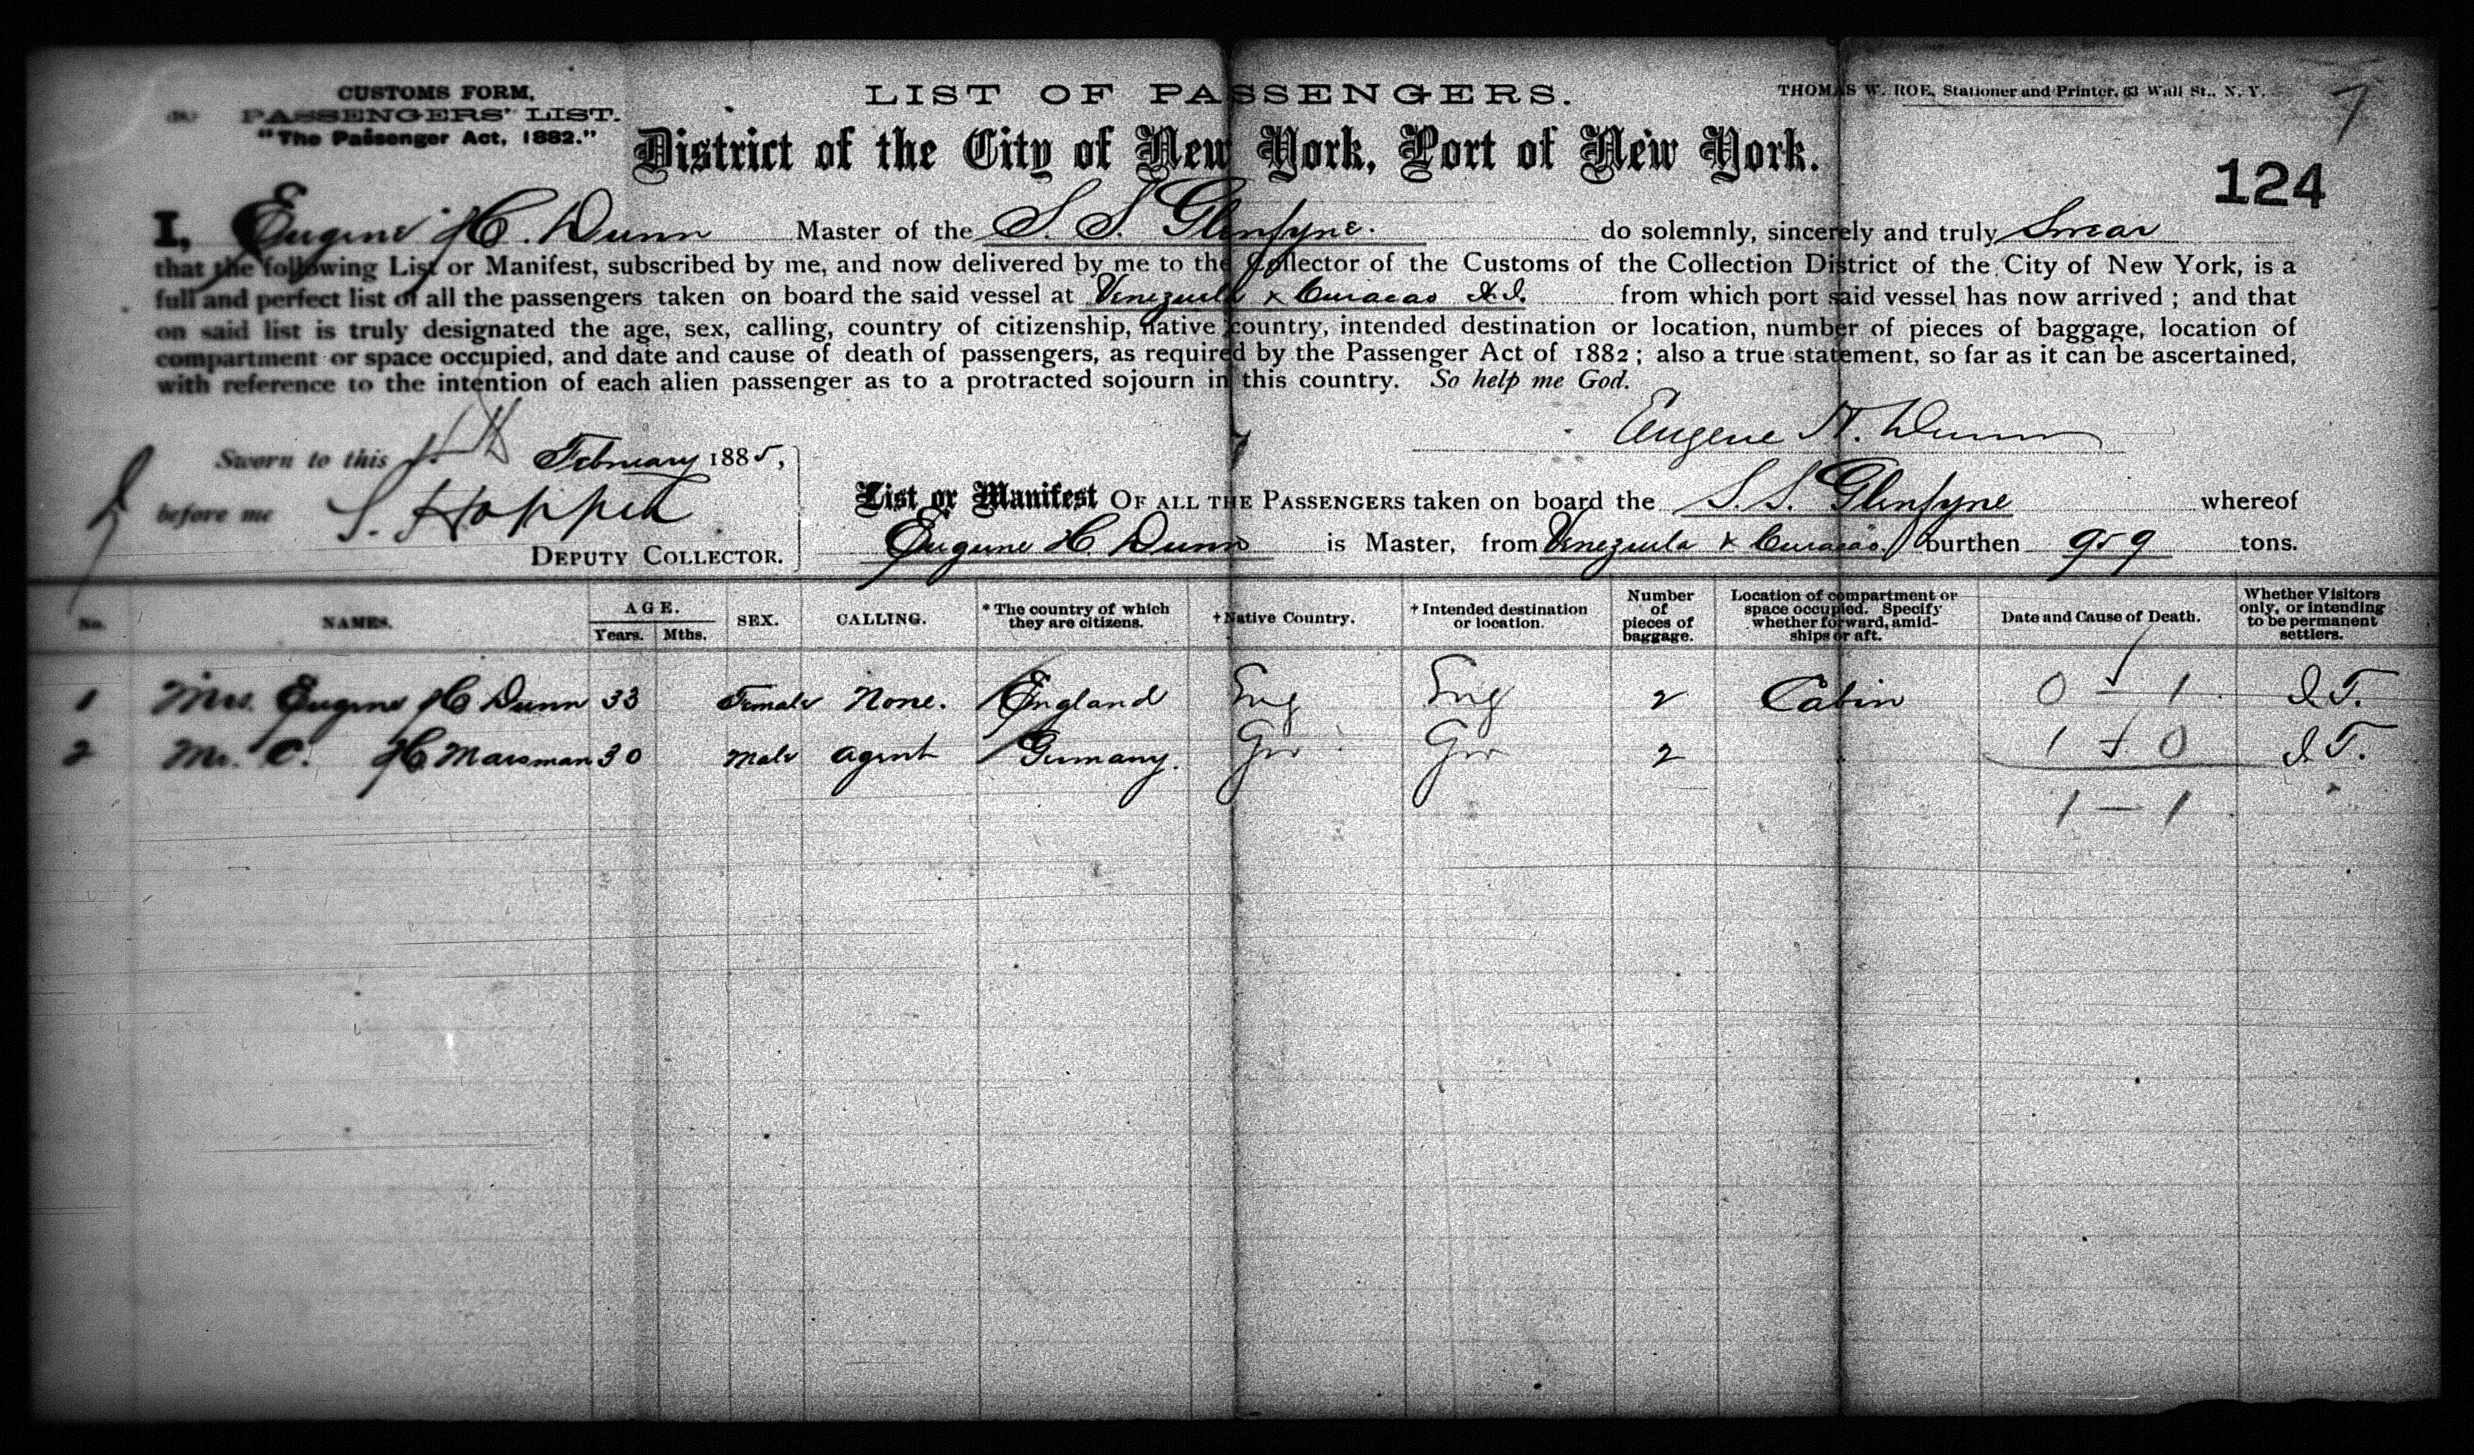 CUSTOMS FORM,
PASSENGERS' LIST.
"The Passenger Act, 1882."
LIST OF PASSENGERS.
THOMAS W. ROE, Stationer and Printer, 63 Wall St., N. Y.
7
District of the City of New York, Port of New York.
124
I, Eugene H. Dunn Master of the S. S. Glenfyne. do solemnly, sincerely and truly Swear
that the following List or Manifest, subscribed by me, and now delivered by me to the Collector of the Customs of the Collection District of the City of New York, is a
full and perfect list of all the passengers taken on board the said vessel at Venezuela & Curacao from which port said vessel has now arrived; and that
on said list is truly designated the age, sex, calling, country of citizenship, native country, intended destination or location, number of pieces of baggage, location of
compartment or space occupied, and date and cause of death of passengers, as required by the Passenger Act of 1882; also a true statement, so far as it can be ascertained,
with reference to the intention of each alien passenger as to a protracted sojourn in this country. So help me God.
Eugene H. Dunn
Sworn to this February 1885,
before me S. Hopper
DEPUTY COLLECTOR.
List or Manifest OF ALL THE PASSENGERS taken on board the S. S. Glenfyne whereof
Eugene H Dunn is Master, from Venezuela & Curacao burthen 959 tons.
No. NAMES. AGE. Years. Mths. SEX. CALLING. * The country of which they are citizens. † Native Country. † Intended destination or location. Number of pieces of baggage. Location of compartment or space occupied. Specify whether forward, amidships or aft. Date and Cause of Death. Whether Visitors only, or intending to be permanent settlers.
1 Mrs. Eugene H Dunn 33 Female None. England Eng Eng 2 Cabin 0 - 1 I. T.
2 Mr. C. H Marsman 30 Male agent Germany. Ger Ger 2 1 - 0 I. T.
1 - 1